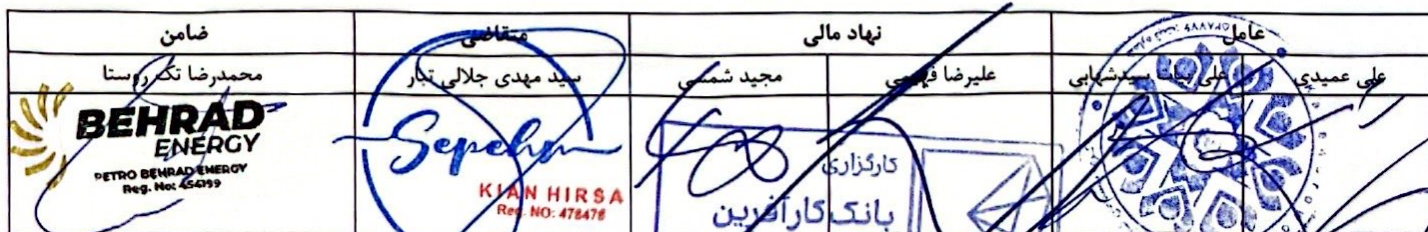 عامل نهاد مالی متقاضی ضامن
علی عمیدی علی بیات سیدشهابی علیرضا فهیمی مجید شمسی سید مهدی جلالی تبار محمدرضا تک روستا
BEHRAD
ENERGY
PETRO BEHRAD ENERGY
Reg. No: 454199
Sepehr
KIAN HIRSA
Reg. NO: 478476
کارگزاری
بانک کارآفرین